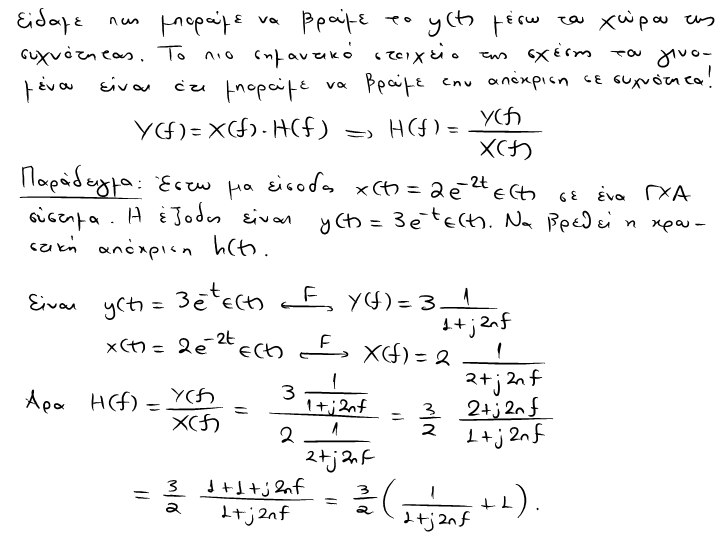 Είδαμε πως μπορούμε να βρούμε το y(t) μέσω του χώρου της
συχνότητας. Το πιο σημαντικό στοιχείο της σχέσης του γινο-
μένου είναι ότι μπορούμε να βρούμε την απόκριση σε συχνότητα!
Y(f) = X(f)·H(f) ⇒ H(f) = Y(f)/X(f)
Παράδειγμα: Έστω μια είσοδος x(t) = 2e^{-2t}ε(t) σε ένα ΓΧΑ
σύστημα. Η έξοδος είναι y(t) = 3e^{-t}ε(t). Να βρεθεί η κρου-
στική απόκριση h(t).
Είναι y(t) = 3e^{-t}ε(t) ⟷^F Y(f) = 3 1/(1+j2πf)
x(t) = 2e^{-2t}ε(t) ⟷^F X(f) = 2 1/(2+j2πf)
Άρα H(f) = Y(f)/X(f) = (3 1/(1+j2πf))/(2 1/(2+j2πf)) = 3/2 (2+j2πf)/(1+j2πf)
= 3/2 (1+1+j2πf)/(1+j2πf) = 3/2 (1/(1+j2πf) + 1).